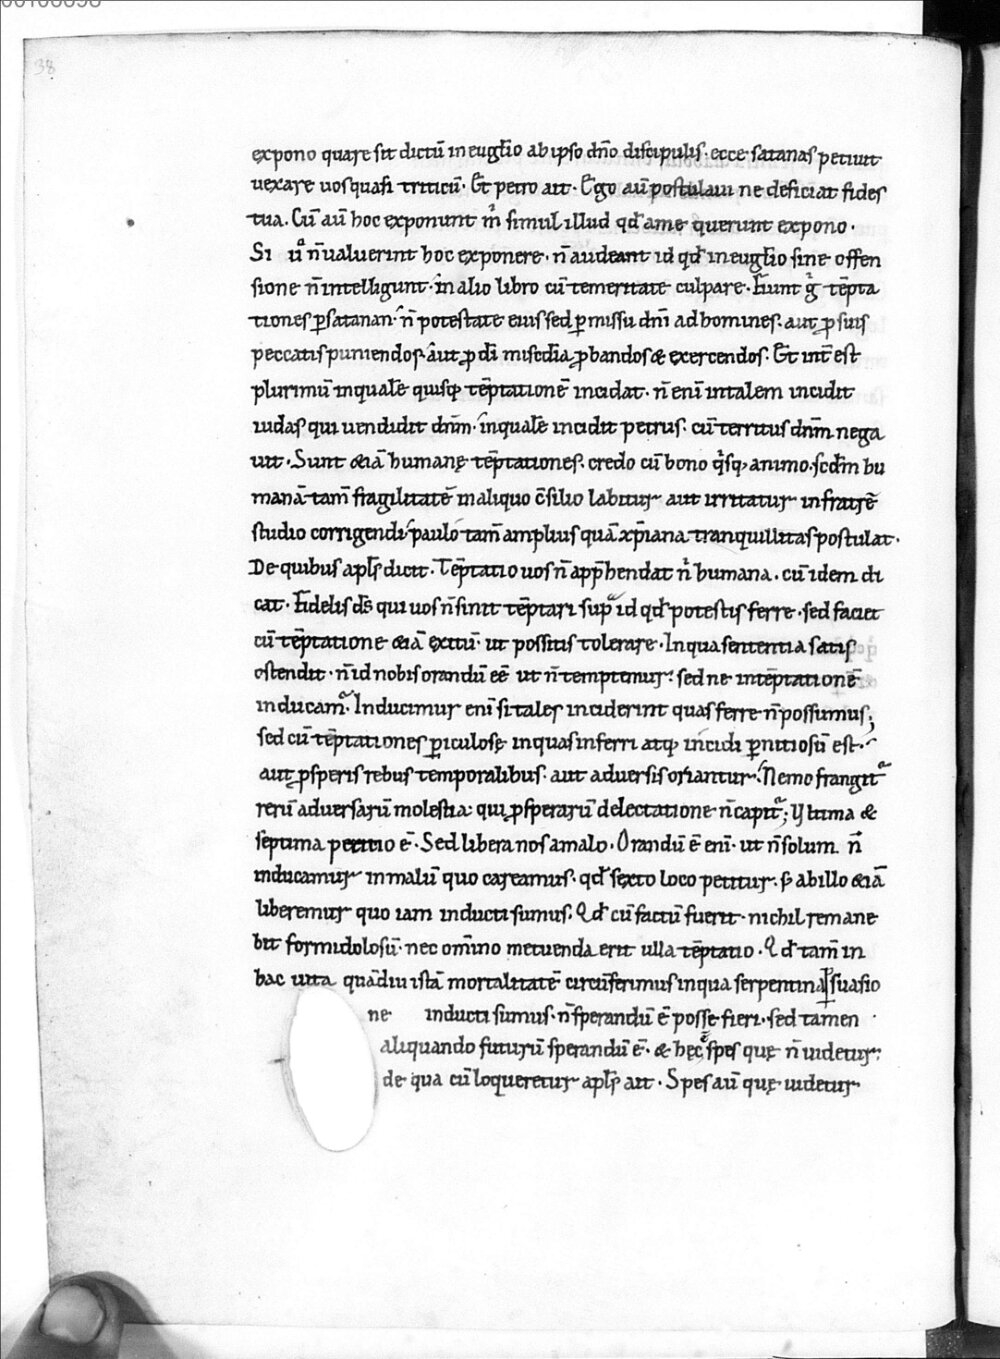 38
expono quare sit dictū in eugl̄io ab ipso dn̄o discipulis. ecce satanas petiuit
uexare uos quasi triticū. Et petro ait. Ego aū postulaui ne deficiat fides
tua. Cū aū hoc exponunt m̄ simul illud qd̄ a me querunt expono.
Si ū n̄ ualuerint hoc exponere. n̄ audeant id qd̄ in eugl̄io sine offen
sione n̄ intelligunt. in alio libro cū temeritate culpare. Fiunt g̊ tēpta
tiones p̱ satanan. n̄ potestate eius sed p̱missu dn̄i ad homines. aut p̱ suis
peccatis puniendos. aut p̱ di miscd̄ia p̱bandos & exercendos. Et int̄ est
plurimū in qualē quisq; tēptationē incidat. n̄ enī in talem incidit
iudas qui uendidit dn̄m. in qualē incidit petrus. cū territus dn̄m nega
uit. Sunt &iā humanę tēptationes. credo cū bono q̇sq; animo. scd̄m hu
manā tam̄ fragilitatē in aliquo c̄silio labitur aut irritatur in fratrē
studio corrigendi. paulo tam̄ amplius quā xp̄iana tranquillitas postulat.
De quibus apl̄s dicit. Tēptatio uos n̄ app̄hendat n̄ humana. cū idem di
cat. Fidelis ds̄ qui uos n̄ sinit tēptari sup̱ id qd̄ potestis ferre. sed faciet
cū tēptatione &iā exitū. ut possitis tolerare. In qua sententia satis
ostendit. n̄ id nobis orandū eē ut n̄ temptemur. sed ne in tēptationē
inducam̄. Inducimur enī si tales inciderint quas ferre n̄ possumus;
sed cū tēptationes p̱iculosę in quas inferri atq; incidi p̱nitiosū est.
aut p̱speris rebus temporalibus. aut aduersis oriantur. Nemo frangit̄
rerū aduersarū molestia. qui p̱sperarū delectatione n̄ capit̄; Vltima &
septima petitio ē. Sed libera nos a malo. Orandū ē enī. ut n̄ solum n̄
inducamur in malū quo careamus. qd̄ sexto loco petitur. s; ab illo &iā
liberemur quo iam inducti sumus. Qd̄ cū factū fuerit. nichil remane
bit formidolosū. nec om̄ino metuenda erit ulla tēptatio. Qd̄ tam̄ in
hac uita quādiu istā mortalitatē circūferimus in qua serpentina p̱suasio
ne inducti sumus. n̄ sperandū ē posse fieri. sed tamen
aliquando futurū sperandū ē. & hęc ē spes quę n̄ uidetur.
de qua cū loqueretur apl̄s ait. Spes aū quę uidetur